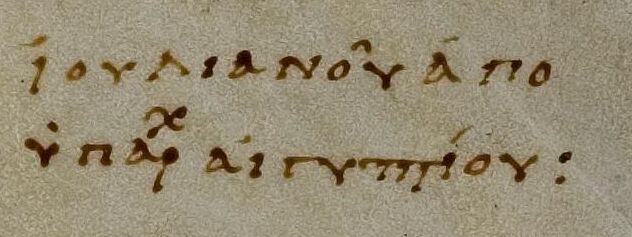 ἰουλιανοῦ ἀπο
ὑπάρχ αἰγυπτίου: